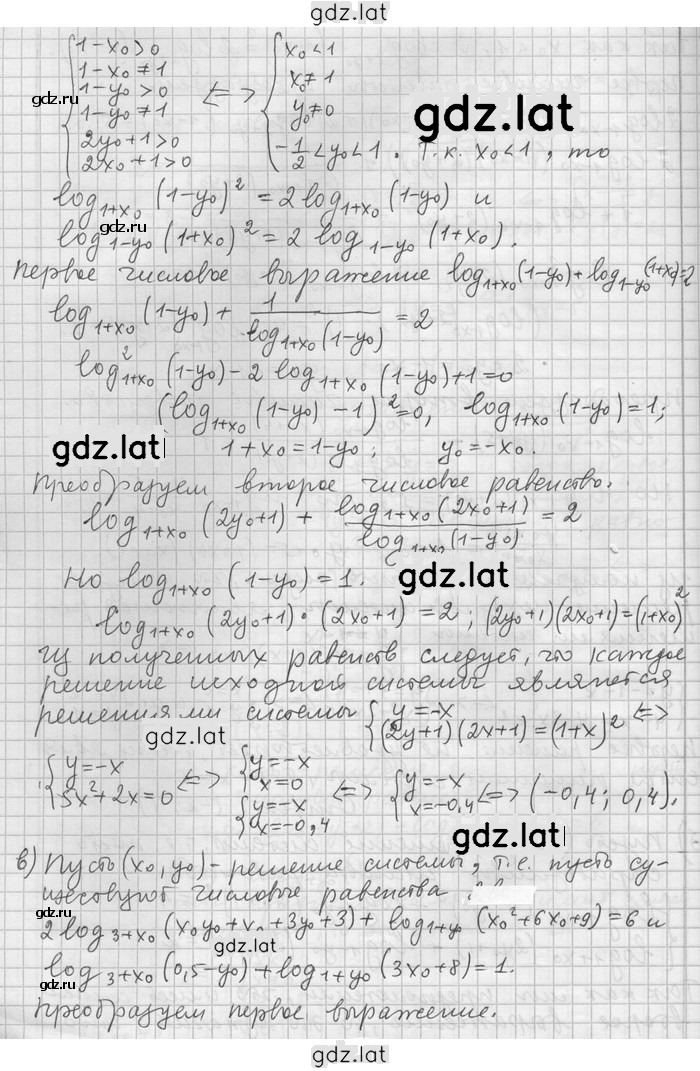 gdz.lat
1-x₀>0
1-x₀≠1
1-y₀>0
1-y₀≠1
2y₀+1>0
2x₀+1>0
⇔
x₀<1
x₀≠1
y₀≠0
-1/2<y₀<1. Т.к. x₀<1, то
gdz.ru
gdz.lat
log₁₊ₓ₀(1-y₀)²=2log₁₊ₓ₀(1-y₀) и
gdz.lat
log₁₋y₀(1+x₀)²=2log₁₋y₀(1+x₀).
первое числовое выражение log₁₊ₓ₀(1-y₀)+log₁₋y₀(1+x₀)=2
log₁₊ₓ₀(1-y₀)+1/log₁₊ₓ₀(1-y₀)=2
gdz.ru
log²₁₊ₓ₀(1-y₀)-2log₁₊ₓ₀(1-y₀)+1=0
(log₁₊ₓ₀(1-y₀)-1)²=0, log₁₊ₓ₀(1-y₀)=1;
gdz.lat
1+x₀=1-y₀; y₀=-x₀.
Преобразуем второе числовое равенство.
log₁₊ₓ₀(2y₀+1)+log₁₊ₓ₀(2x₀+1)/log₁₊ₓ₀(1-y₀)=2
Но log₁₊ₓ₀(1-y₀)=1.
gdz.lat
log₁₊ₓ₀(2y₀+1)·(2x₀+1)=2; (2y₀+1)(2x₀+1)=(1+x₀)²
Из полученных равенств следует, что каждое
решение исходной системы является
решениями системы {y=-x
(2y+1)(2x+1)=(1+x)² ⇔
gdz.lat
{y=-x
5x²+2x=0 ⇔ {y=-x
x=0
{y=-x
x=-0,4 ⇔ {y=-x
x=-0,4 ⇔ (-0,4; 0,4).
gdz.lat
в) Пусть (x₀,y₀)-решение системы, т.е. пусть су-
ществуют числовые равенства
2log₃₊ₓ₀(x₀y₀+x₀+3y₀+3)+log₁₊y₀(x₀²+6x₀+9)=6 и
gdz.lat
log₃₊ₓ₀(0,5-y₀)+log₁₊y₀(3x₀+8)=1.
Преобразуем первое выражение.
gdz.ru
gdz.lat
gdz.lat